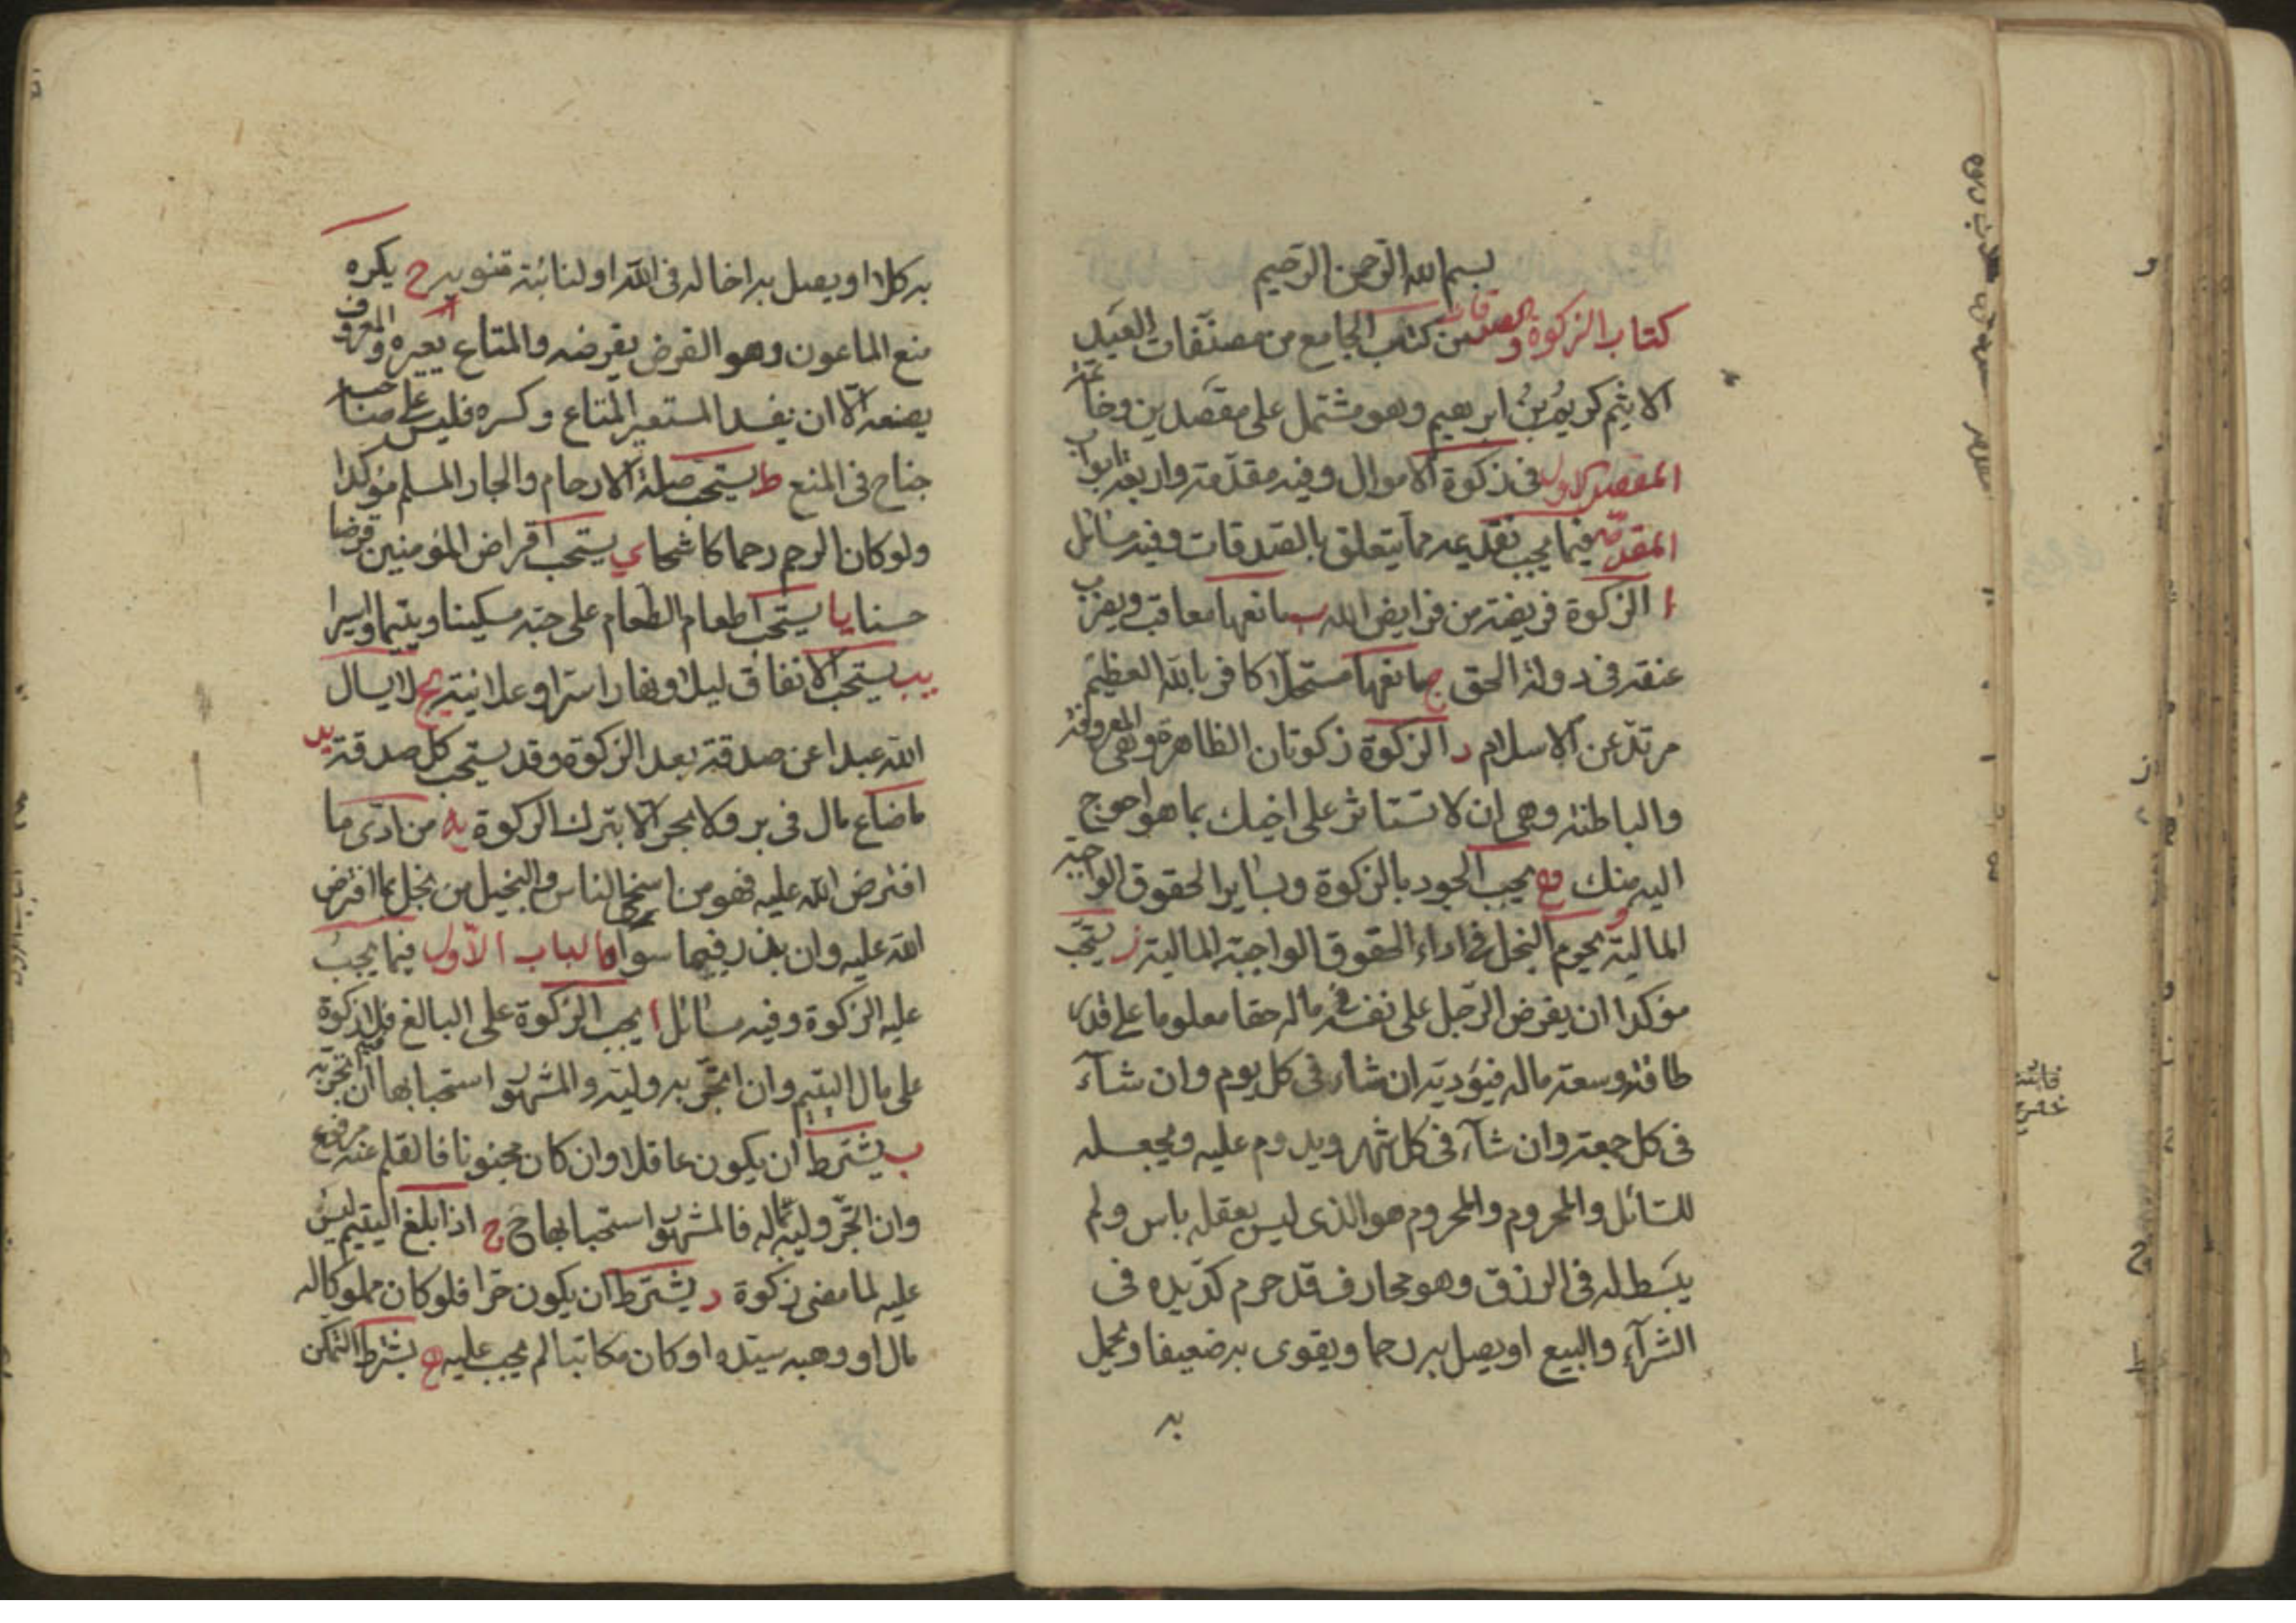 بسم الله الرحمن الرحيم
كتاب الزكوة والصدقات من كتاب الجامع من مصنفات العبد
الاثيم كريم بن ابرهيم وهو مشتمل على مقصدين وخاتمة
المقصد الاول في زكوة الاموال وفيه مقدمة واربعة ابواب
المقدمة فيما يجب تقديمه مما يتعلق بالصدقات وفيه مسائل
ا الزكوة فريضة من فرايض الله ب مانعها معاقب ويضرب
عنقه في دولة الحق ج مانعها مستحلا كافر بالله العظيم
مرتد عن الاسلام د الزكوة زكوتان الظاهرة وهي المعروفة
والباطنة وهي ان لا تستاثر على اخيك بما هو احوج
اليه منك ه يجب الجود بالزكوة وبساير الحقوق الواجبة
المالية و يحرم البخل في اداء الحقوق الواجبة المالية ز يستحب
مؤكدا ان يفرض الرجل على نفسه في ماله حقا معلوما على قدر
طاقته وسعة ماله فيؤديه ان شاء في كل يوم وان شآء
في كل جمعة وان شآء في كل شهر ويدوم عليه ويجعله
للسائل والمحروم والمحروم هو الذي ليس بعقله باس ولم
يبسط له في الرزق وهو محارف قد حرم كد يده في
الشرآء والبيع او يصل به رحما ويقوى به ضعيفا ويحمل
به
به كلا او يصل به اخا له في الله او لنائبة تنوبه ح يكره
منع الماعون وهو القرض يقرضه والمتاع يعيره والمعروف
يصنعه الا ان يفسد المستعير المتاع وكسره فليس على صاحبه
جناح في المنع ط يستحب صلة الارحام والجار المسلم مؤكدا
ولو كان الرحم رحما كاشحا ي يستحب اقراض المؤمنين قرضا
حسنا يا يستحب اطعام الطعام على حبه مسكينا ويتيما واسيرا
يب يستحب الانفاق ليلا ونهارا سرا وعلانية يج لا يسال
الله عبدا عن صدقة بعد الزكوة وقد يستحب كل صدقة يد
ماضاع مال في بر ولا بحر الا بترك الزكوة يه من ادى ما
افترض الله عليه فهو من اسخى الناس والبخيل من بخل بما افترض
الله عليه وان بذر فيما سواه الباب الاول فيما يجب
عليه الزكوة وفيه مسائل ا يجب الزكوة على البالغ فلا زكوة
على مال اليتيم وان اتجر به وليه والمشهور استحبابها ان اتجر به
ب يشترط ان يكون عاقلا وان كان مجنونا فالقلم عنه مرفوع
وان اتجر وليه بماله فالمشهور استحبابها ح ج اذا بلغ اليتيم ليس
عليه لما مضى زكوة د يشترط ان يكون حرا فلو كان مملوكا له
مال او وهبه سيده او كان مكاتبا لم يجب عليه ه يشترط التمكن